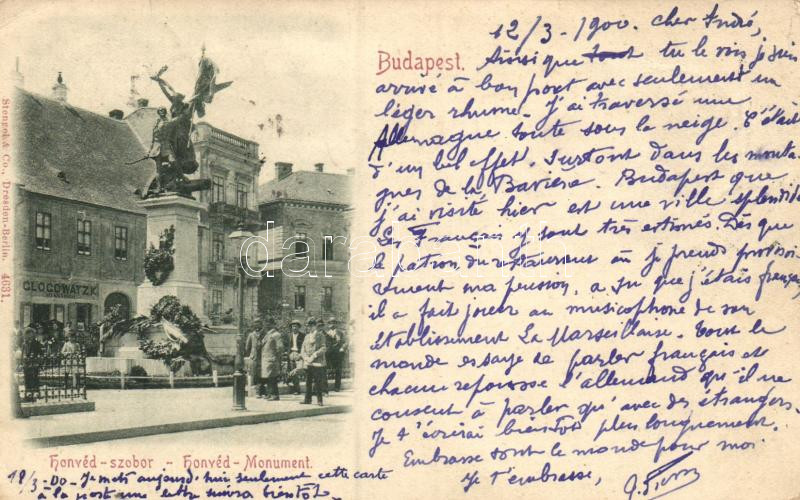 12/3-1900. cher André,
Budapest.
Ainsi que tu le vois je suis
arrivé à bon port avec seulement un
léger rhume. J'ai traversé une
Allemagne toute sous la neige. C'était
d'un bel effet. Surtout dans les monta-
gnes de la Bavière. Budapest que
j'ai visité hier est une ville splendide
Les Français y sont très estimés. Dès que
le patron du restaurant où je prends provisoi-
rement ma pension, a su que j'étais français,
il a fait jouer au musicophone de son
établissement La Marseillaise. Tout le
monde essaye de parler français et
chacun repousse l'allemand qu'il ne
consent à parler qu'avec des étrangers.
Je t'écrirai bientôt plus longuement.
Embrasse tout le monde pour moi
Je t'embrasse,
Stengel & Co., Dresden-Berlin. 4631.
GLOGOWATZ K.
darabanth.com
Honvéd-szobor - Honvéd-Monument.
18/3-00- Je mets aujourd'hui seulement cette carte
à la poste une lettre suivra bientôt.